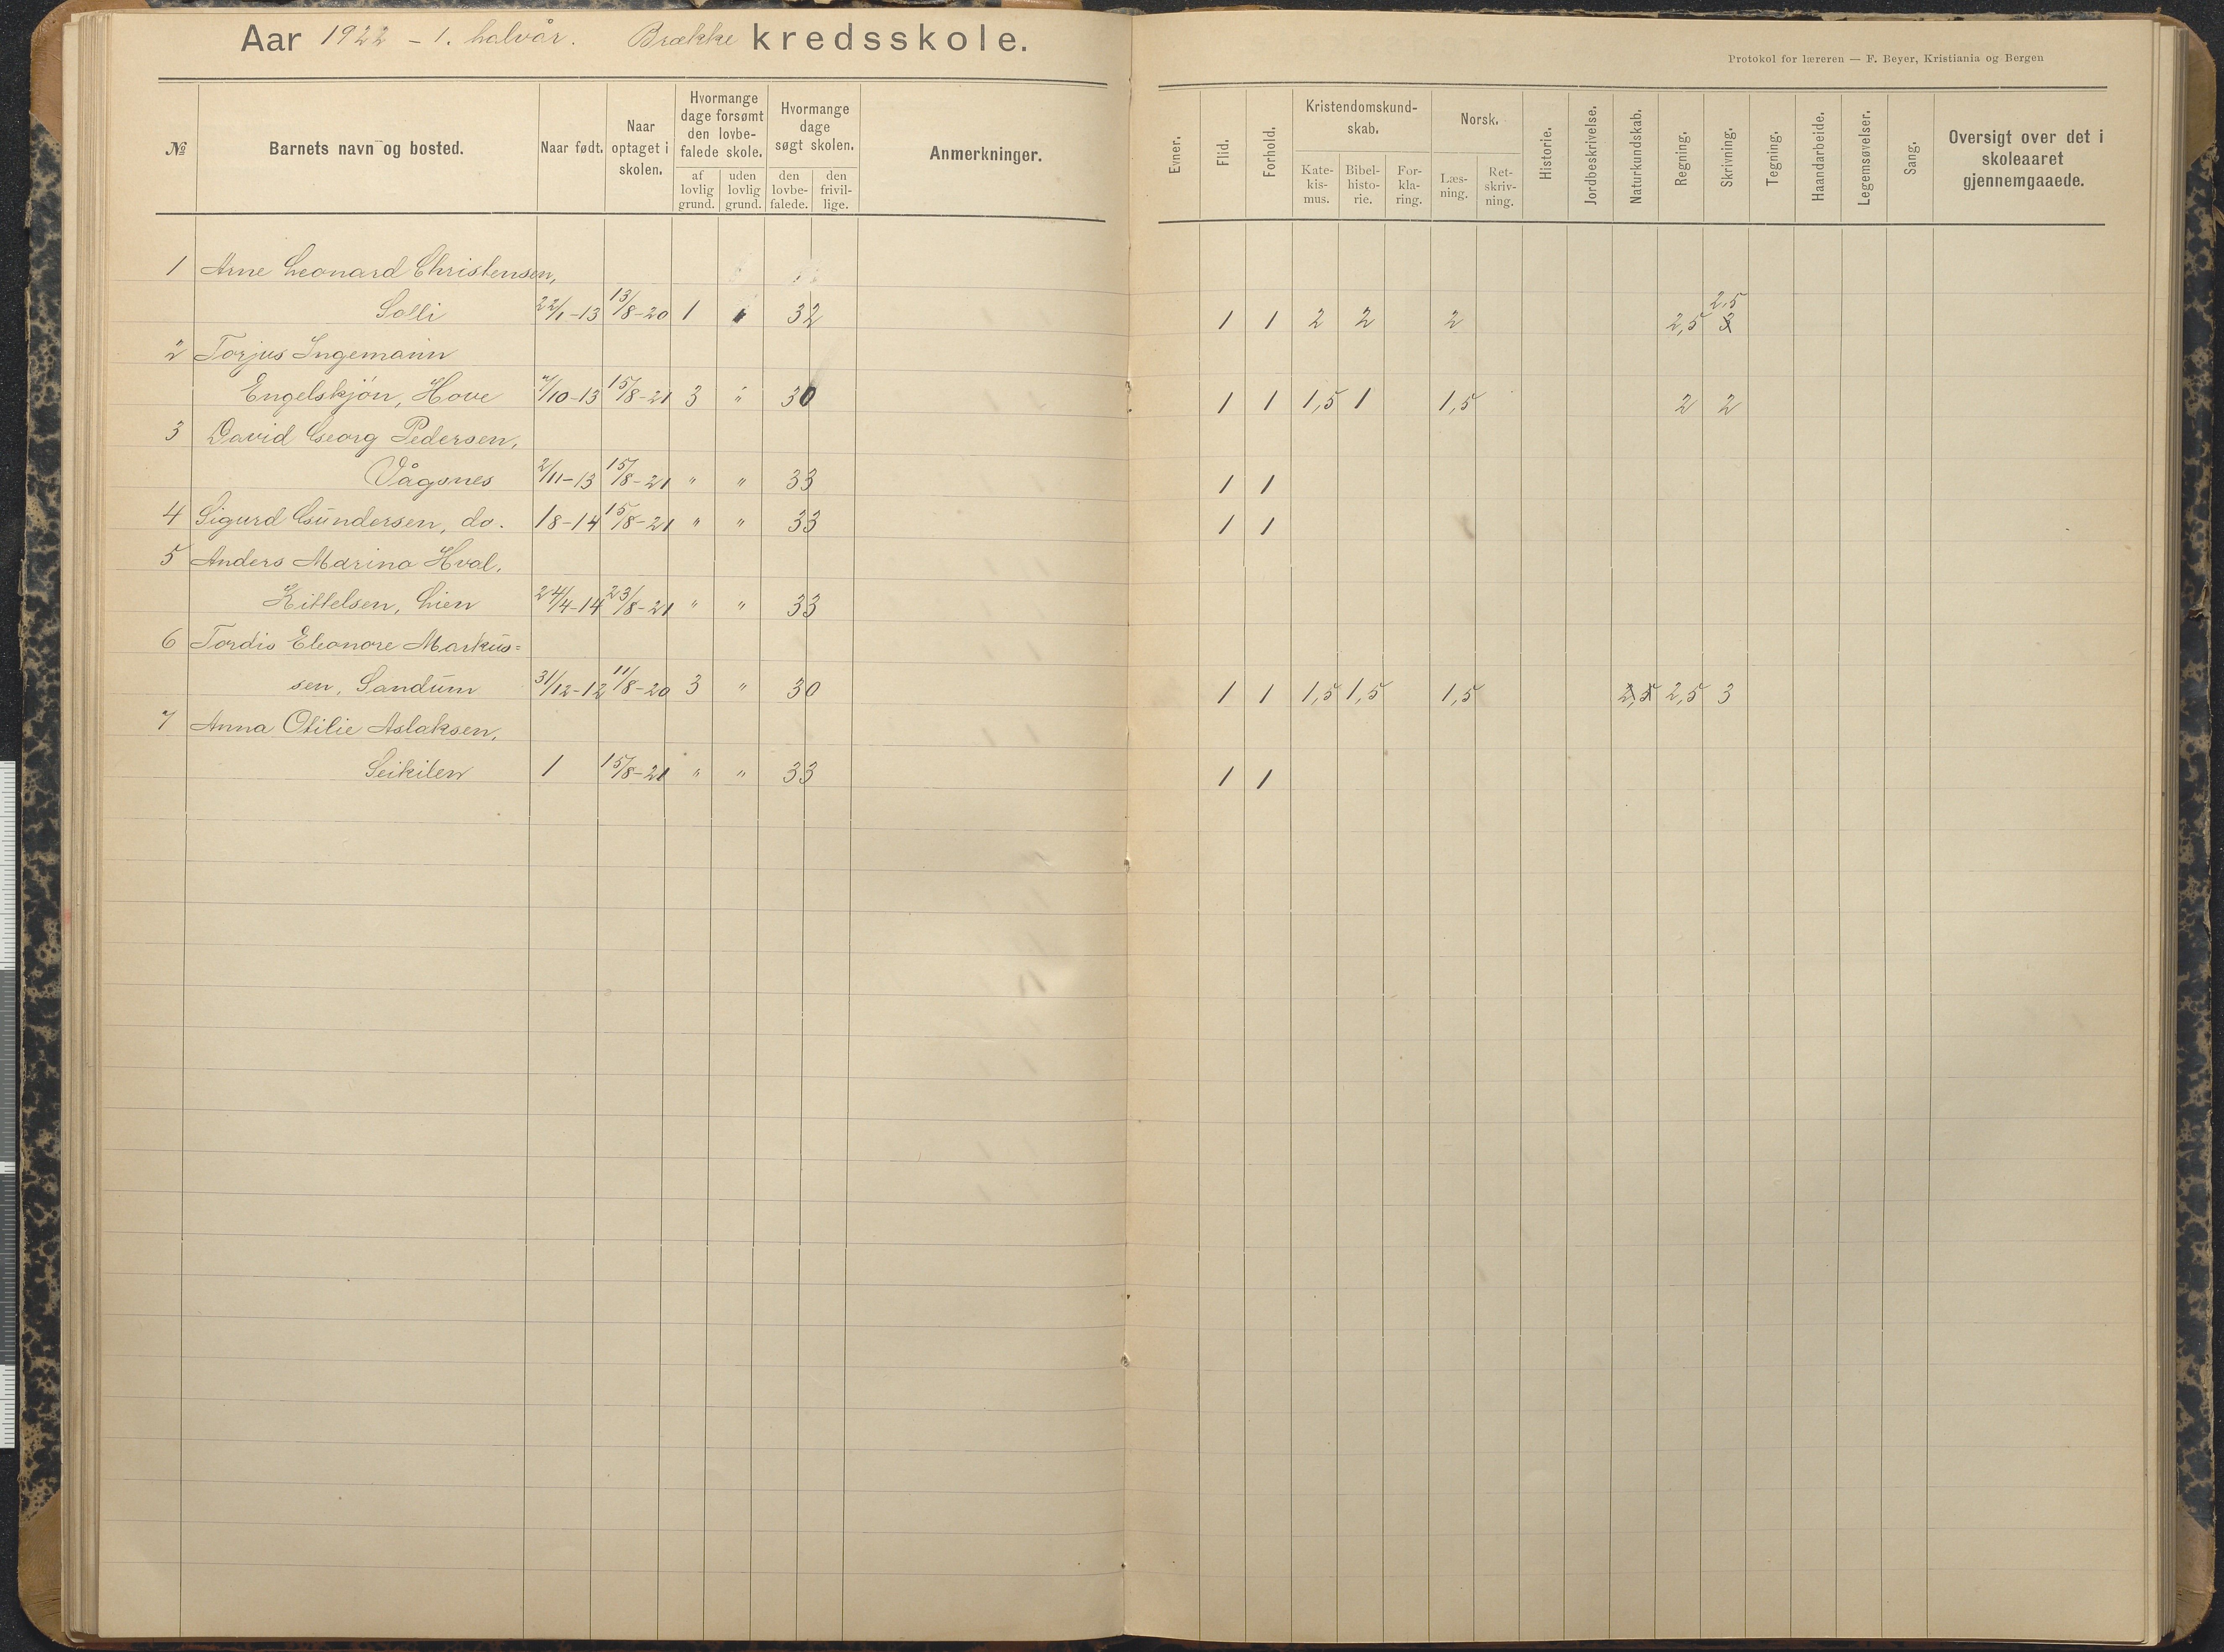 Aar 1922 – 1. halvår. Brække kredsskole.
Protokol for læreren — F. Beyer, Kristiania og Bergen
№ Barnets navn og bosted. Naar født. Naar optaget i skolen. Hvormange dage forsømt den lovbefalede skole. af lovlig grund. uden lovlig grund. Hvormange dage søgt skolen. den lovbefalede. den frivillige. Anmerkninger. Evner. Flid. Forhold. Kristendomskundskab. Katekismus. Bibelhistorie. Forklaring. Norsk. Læsning. Retskrivning. Historie. Jordbeskrivelse. Naturkundskab. Regning. Skrivning. Tegning. Haandarbeide. Legemsøvelser. Sang. Oversigt over det i skoleaaret gjennemgaaede.
1 Arne Leonard Christensen,
Solli 22/1-13 13/8-20 1 " 32 1 1 2 2 2 2,5 2,5
2 Torjus Ingemann
Engelskjøn, Hove 7/10-13 15/8-21 3 " 30 1 1 1,5 1 1,5 2 2
3 David Georg Pedersen,
Vågsnes 2/11-13 15/8-21 " " 33 1 1
4 Sigurd Gundersen, do. 18-14 15/8-21 " " 33 1 1
5 Anders Marino Hval.
Kittelsen, Lien 24/4-14 23/8-21 " " 33
6 Tordis Eleonore Markus=
sen, Sandum 31/12-12 11/8-20 3 " 30 1 1 1,5 1,5 1,5 2,5 2,5 3
7 Anna Otilie Aslaksen,
Seikilen 1 15/8-21 " " 33 1 1